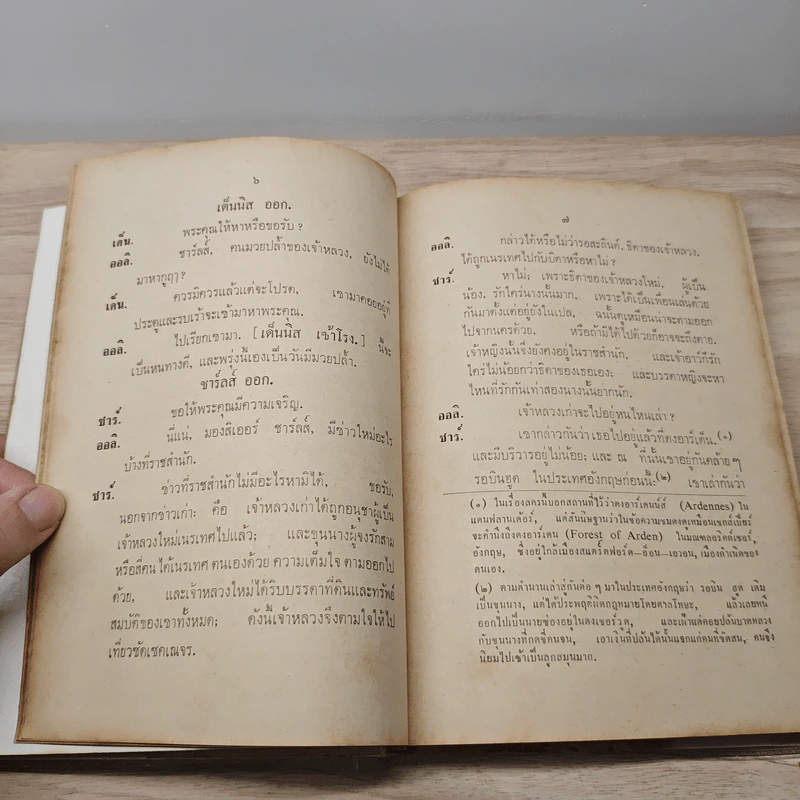 ๖
เด็นนิส ออก.
เด็น. พระคุณให้หาหรือขอรับ ?
ออลิ. ชาร์ลส์, คนมวยปล้ำของเจ้าหลวง, ยังไม่ได้
มาหากูฤๅ?
เด็น. ควรมิควรแล้วแต่จะโปรด, เขามาคอยอยู่ที่
ประตูและรบเร้าจะเข้ามาหาพระคุณ.
ออลิ. ไปเรียกเขามา. [เด็นนิส เข้าโรง.] นี้จะ
เป็นหนทางดี, และพรุ่งนี้เองเป็นวันมีมวยปล้ำ.
ชาร์ลส์ ออก.
ชาร์. ขอให้พระคุณมีความเจริญ.
ออลิ. นี่แน่, มองสิเออร์ ชาร์ลส์, มีข่าวใหม่อะไร
บ้างที่ราชสำนัก.
ชาร์. ข่าวที่ราชสำนักไม่มีอะไรหามิได้, ขอรับ,
นอกจากข่าวเก่า; คือ เจ้าหลวงเก่าได้ถูกอนุชาผู้เป็น
เจ้าหลวงใหม่เนรเทศไปแล้ว; และขุนนางผู้จงรักสาม
หรือสี่คนได้เนรเทศตนเองด้วย ความเต็มใจ ตามออกไป
ด้วย, และเจ้าหลวงใหม่ได้ริบบรรดาที่ดินและทรัพย์
สมบัติของเขาทั้งหมด; ดังนี้เจ้าหลวงจึงตามใจให้ไป
เที่ยวซัดเซคเณจร.
๗
ออลิ. กล่าวได้หรือไม่ว่ารอสะลินด์, ธิดาของเจ้าหลวง,
ได้ถูกเนรเทศไปกับบิดาหรือหาไม่ ?
ชาร์. หาไม่; เพราะธิดาของเจ้าหลวงใหม่, ผู้เป็น
น้อง, รักใคร่นางนั้นมาก, เพราะได้เป็นเพื่อนเล่นด้วย
กันมาตั้งแต่อยู่ยังในเปล, ฉนั้นดูเหมือนน่าจะตามออก
ไปจากนครด้วย, หรือถ้ามิได้ไปด้วยก็อาจจะถึงตาย.
เจ้าหญิงนั้นจึ่งยังคงอยู่ในราชสำนัก, และเจ้าอาว์ก็รัก
ใคร่ไม่น้อยกว่าธิดาของเธอเอง; และบรรดาหญิงจะหา
ไหนที่รักกันเท่าสองนางนั้นยากนัก.
ออลิ. เจ้าหลวงเก่าจะไปอยู่หนไหนเล่า ?
ชาร์. เขากล่าวกันว่า เธอไปอยู่แล้วที่ดงอาร์เด็น, (๑)
และมีบริวารอยู่ไม่น้อย; และ ณ ที่นั้นเขาอยู่กันคล้ายๆ
รอบินฮูด ในประเทศอังกฤษก่อนนี้: (๒) เขาเล่ากันว่า
(๑) ในเรื่องละครนี้บอกสถานที่ไว้ว่าดงอาร์เดนน์ส์ (Ardennes) ใน
แดนฟลานเด้อร์, แต่สันนิษฐานว่าในข้อความชมดงดูเหมือนเชกส์เปียร์
จะคำนึงถึงดงอาร์เดน (Forest of Arden) ในมณฑลวอริคเชียร์,
อังกฤษ, ซึ่งอยู่ใกล้เมืองสแตร๎ตฟอร์ด—อ็อน—เอวอน, เมืองกำเนิดของ
ตนเอง.
(๒) ตามตำนานเล่าสู่กันต่อ ๆ มาในประเทศอังกฤษว่า รอบิน ฮูด เดิม
เป็นขุนนาง, แต่ได้ประพฤติผิดกฎหมายโดนศาลโทษะ, แล้วเลยหนี
ออกไปเป็นนายซ่องอยู่ในดงเชอร์วูด, และเฝ้าแต่คอยปล้นบาดหลวง
กับขุนนางที่กดขี่คนจน, เอาเงินที่ปล้นได้นั้นแจกแก่คนที่ขัดสน, คนจึ่ง
นิยมไปเข้าเป็นลูกสมุนมาก.